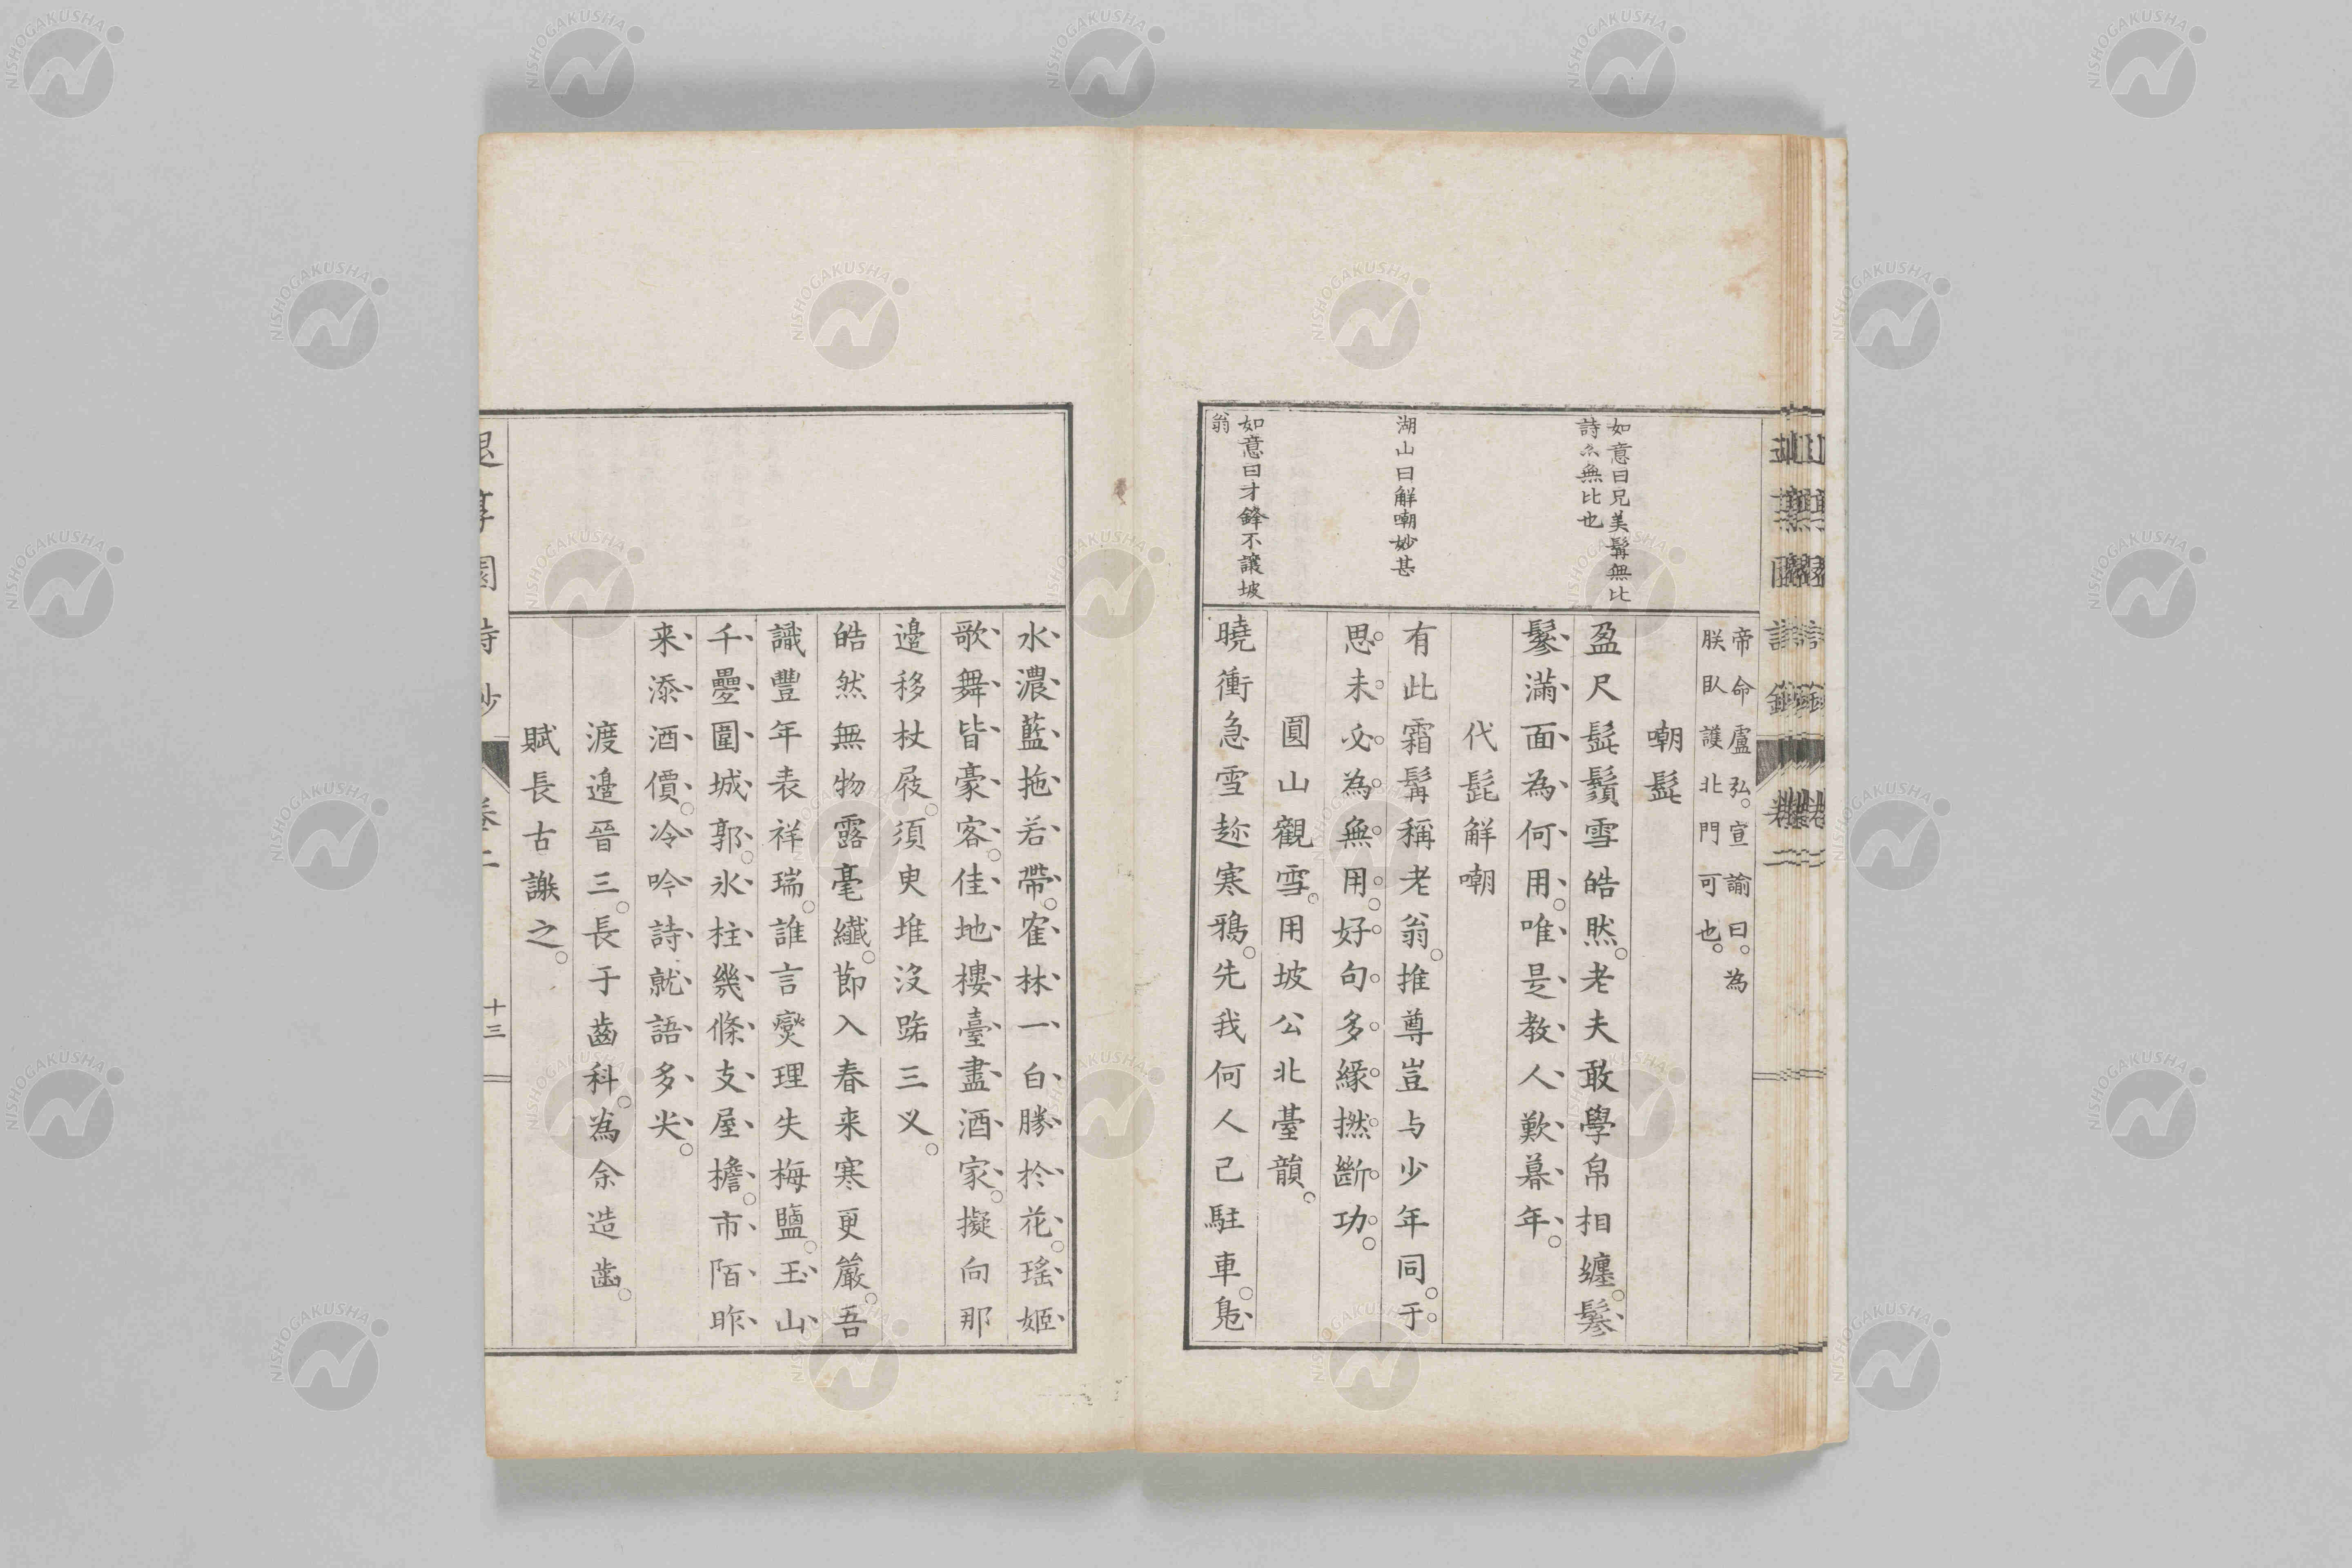 如意曰兄美髯無比
詩亦無比也
湖山曰解嘲妙甚
如意曰才鋒不讓坡
翁
帝命盧弘。宣諭曰。為
朕臥護北門可也。
嘲髭
盈尺髭鬚雪皓然。老夫敢學帛相纏。鬖
鬖滿面為何用。唯是教人歎暮年。
代髭解嘲
有此霜髯稱老翁。推尊豈与少年同。于
思未必為無用。好句多緣撚斷功。
圓山觀雪。用坡公北臺韻。
曉衝急雪趂寒鴉。先我何人已駐車。鳧
水濃藍拖若帶。寉林一白勝於花。瑤姬
歌舞皆豪客。佳地樓臺盡酒家。擬向那
邉移杖屐。須臾堆沒路三叉。
皓然無物露毫纖。節入春来寒更嚴。吾
識豐年表祥瑞。誰言燮理失梅鹽。玉山
千疊圍城郭。氷柱幾條支屋檐。市陌昨
来添酒價。冷吟詩就語多尖。
渡邉晉三。長于齒科。為余造齒。
賦長古謝之。
退享園詩鈔
卷二
十三
NISHOGAKUSHA